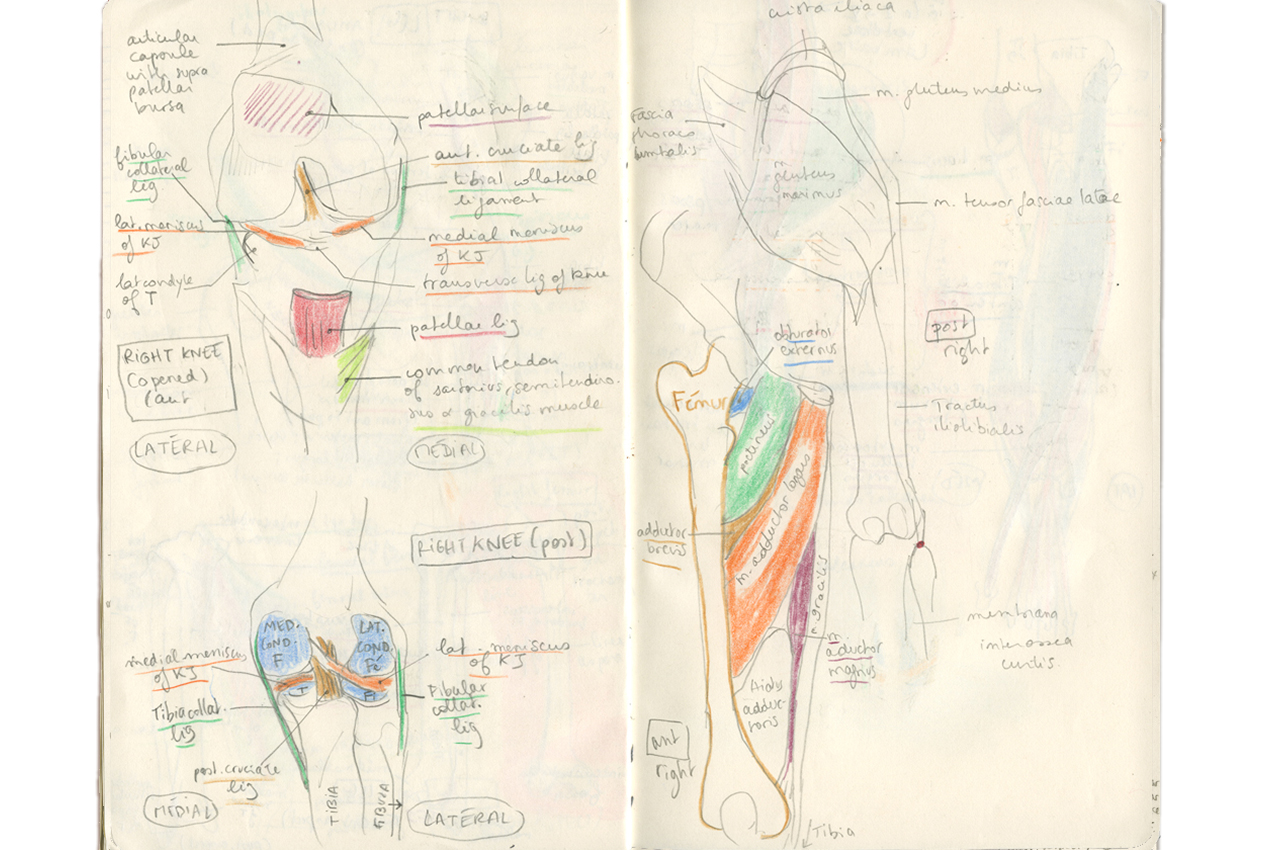 articular
capsule
with supra
patellar
bursa
patellar surface
fibular
collateral
lig
ant. cruciate lig
tibial collateral
ligament
lat. meniscus
of KJ
medial meniscus
of KJ
lat condyle
of T
transverse lig of knee
patellae lig
RIGHT KNEE
(opened)
(ant
common tendon
of sartorius, semitendino.
sus & gracilis muscle
LATÉRAL
MÉDIAL
RIGHT KNEE (post)
MED.
COND
F
LAT.
COND.
Fé
medial meniscus
of KJ
lat. meniscus
of KJ
T
Tibia collat.
lig
Fibular
collat.
lig
post. cruciate
lig
MÉDIAL
TIBIA
FIBULA
LATÉRAL
crista iliaca
m. gluteus medius
Fascia
thoraco
lumbalis
m.
gluteus
maximus
m. tensor fasciae latae
post
right
obturator
externus
Fémur
pectineus
Tractus
iliotibialis
m. adductor longus
adductor
brevis
m. gracilis
membrana
interossea
cruris.
m.
aductor
magnus
Hiatus
adduc-
toris
ant
right
Tibia